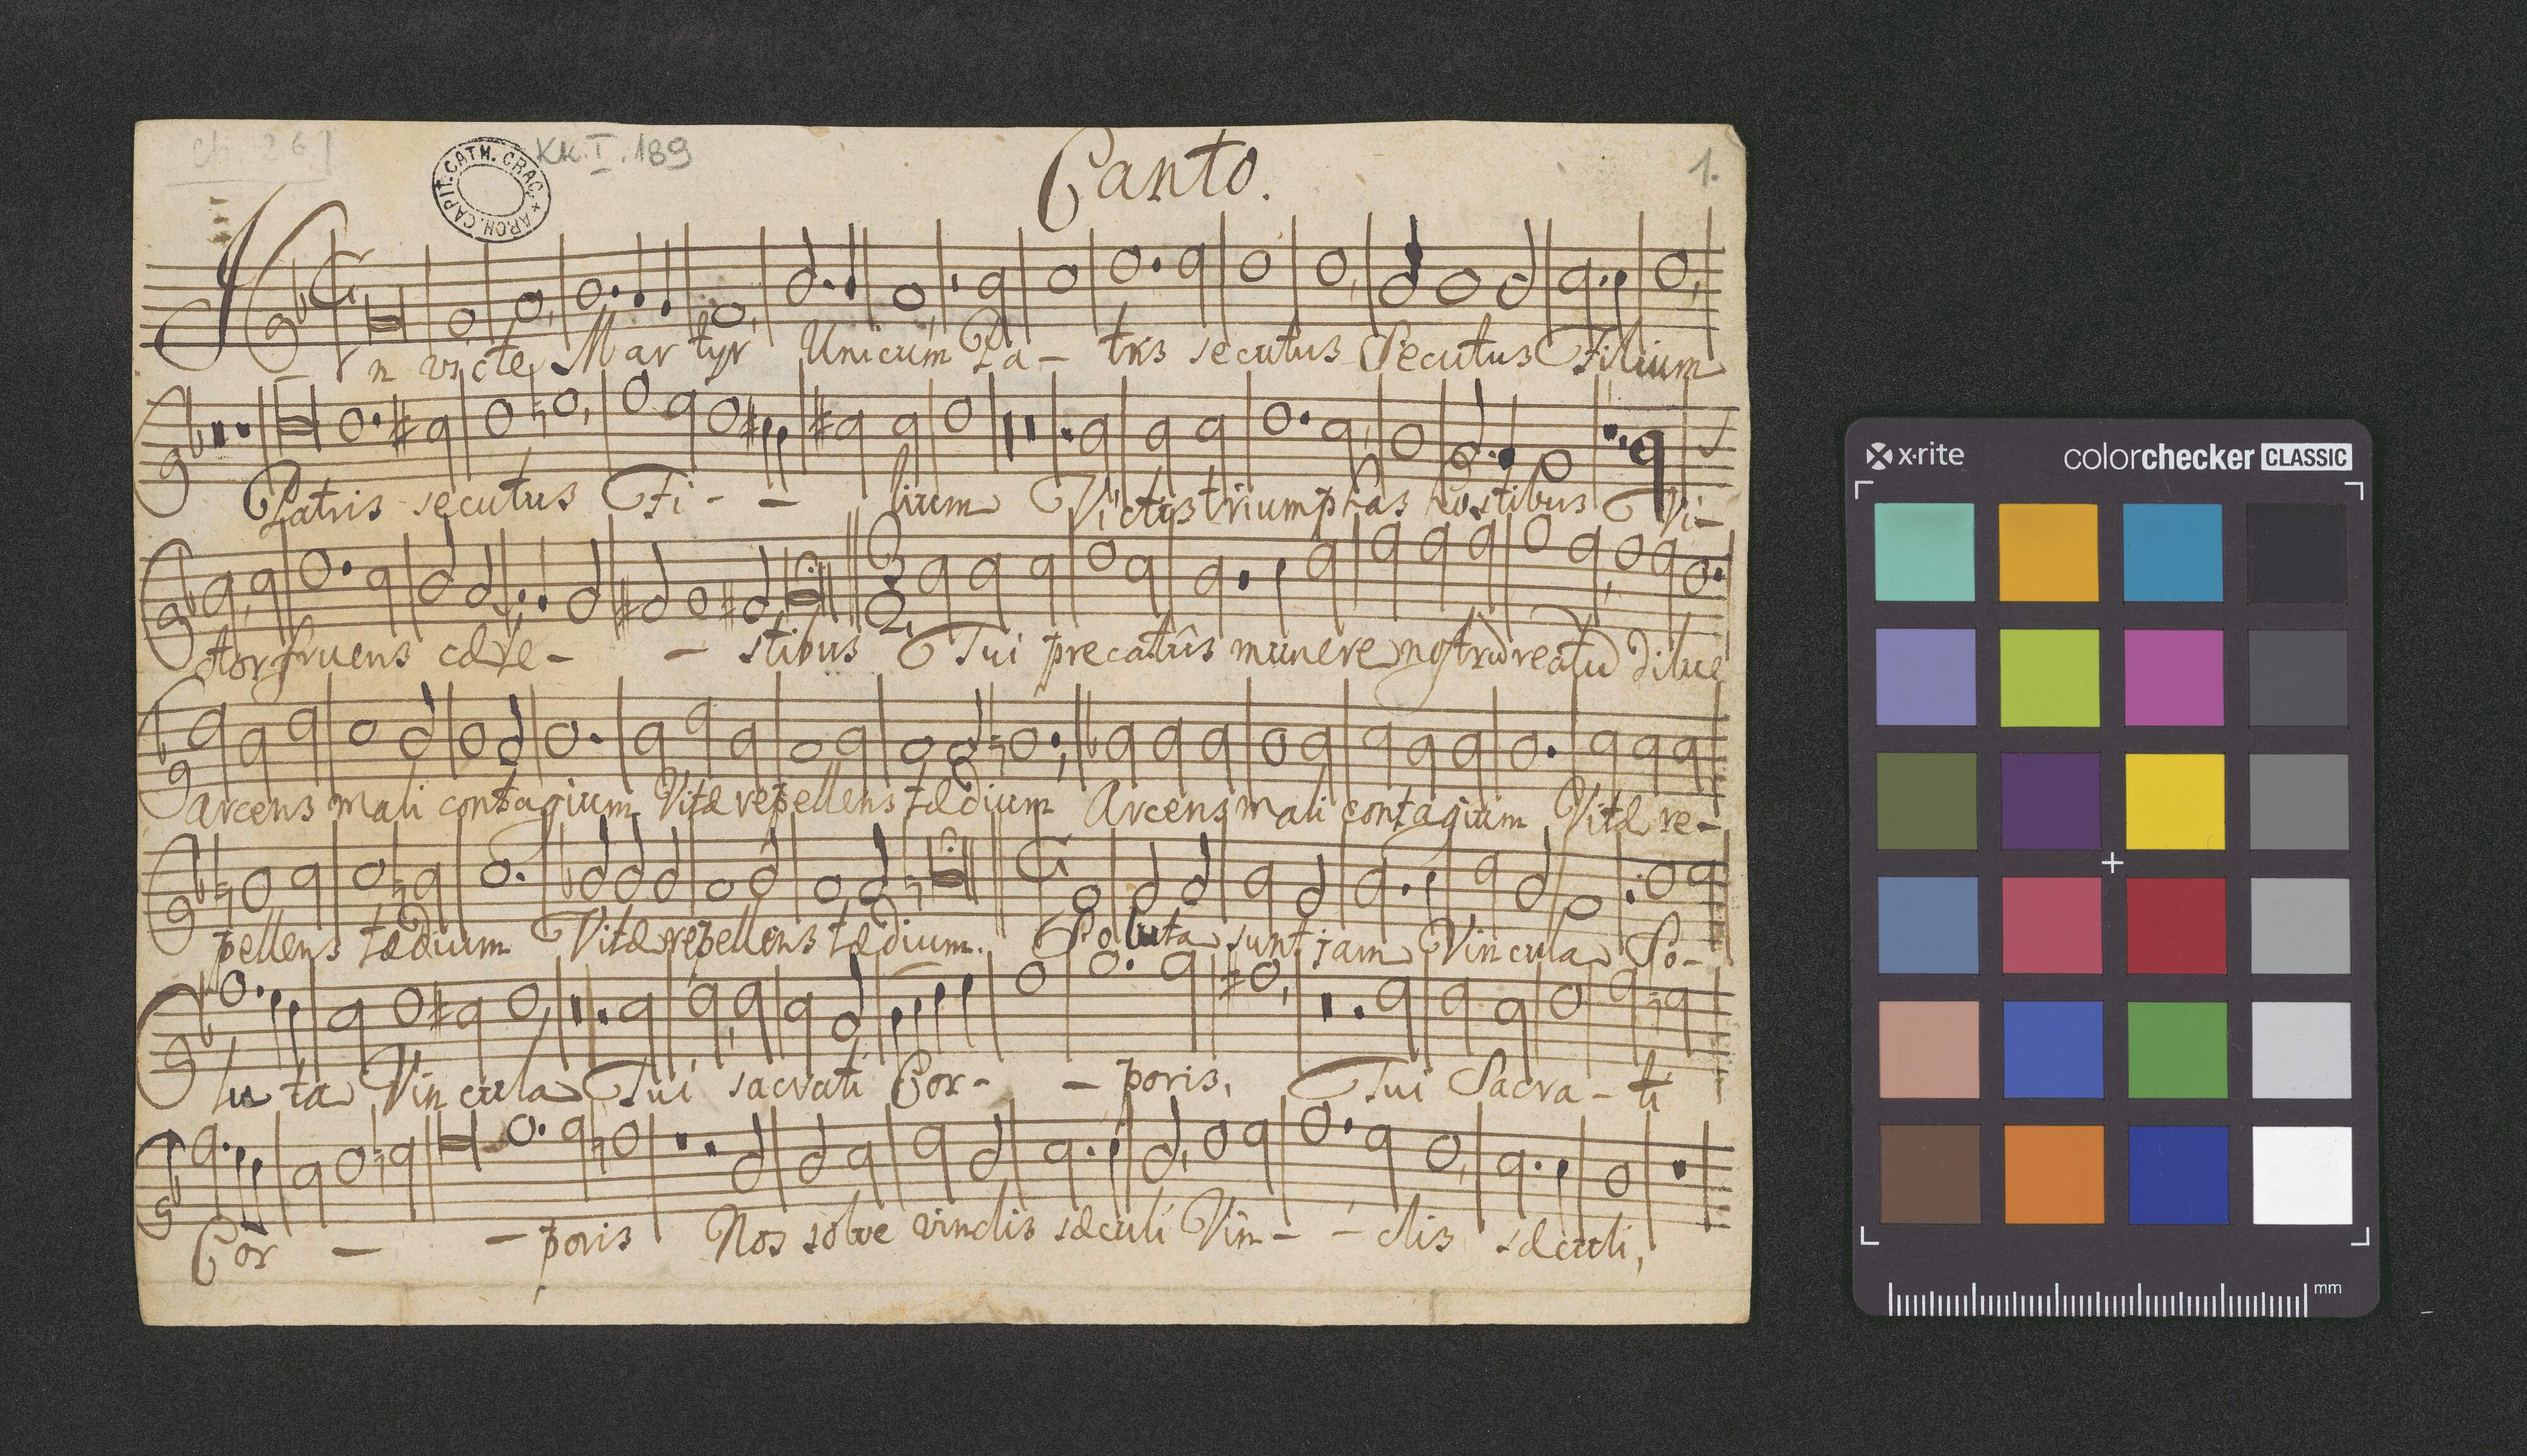 ch. 26]
ARCH. CAPIT. CATH. CRAC. *
KK. I. 189
Canto.
1.
In victe Mar tyr Unicum Pa - tris secutus Secutus Filium
Patris secutus Fi - - lium Victis triumphas hostibus Vi -
ctor fruens cæle - - stibus Tui precatûs munere nostrũ reatũ dilue
arcens mali contagium Vitæ repellens tædium Arcens mali contagium Vitæ re -
pellens tædium Vitæ repellens tædium. Soluta sunt jam Vincula So -
lu ta Vin cula Tui sacrati Cor - - poris, Tui Sacra - ti
Cor - - poris Nos solve vinclis sæculi Vin - - clis sæculi,
x·rite
colorchecker CLASSIC
mm